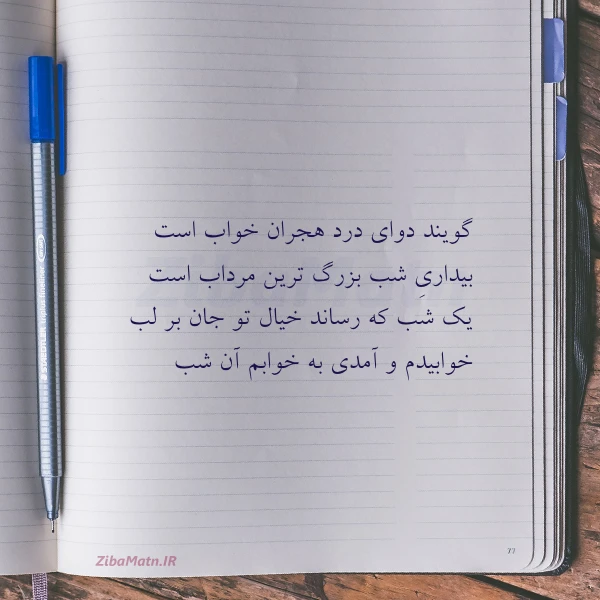 گویند دوای درد هجران خواب است
بیداریِ شب بزرگ ترین مرداب است
یک شَب که رساند خیال تو جان بر لب
خوابیدم و آمدی به خوابم آن شب
77
ZibaMatn.IR